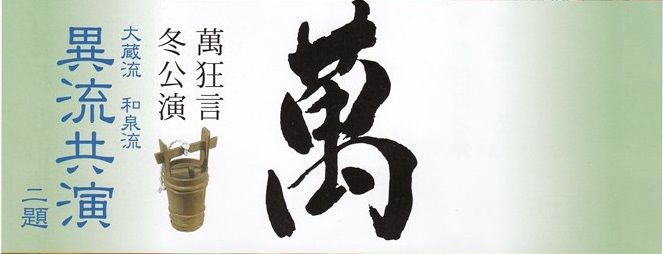 萬
萬狂言
冬公演
大蔵流 和泉流
異流共演
二題